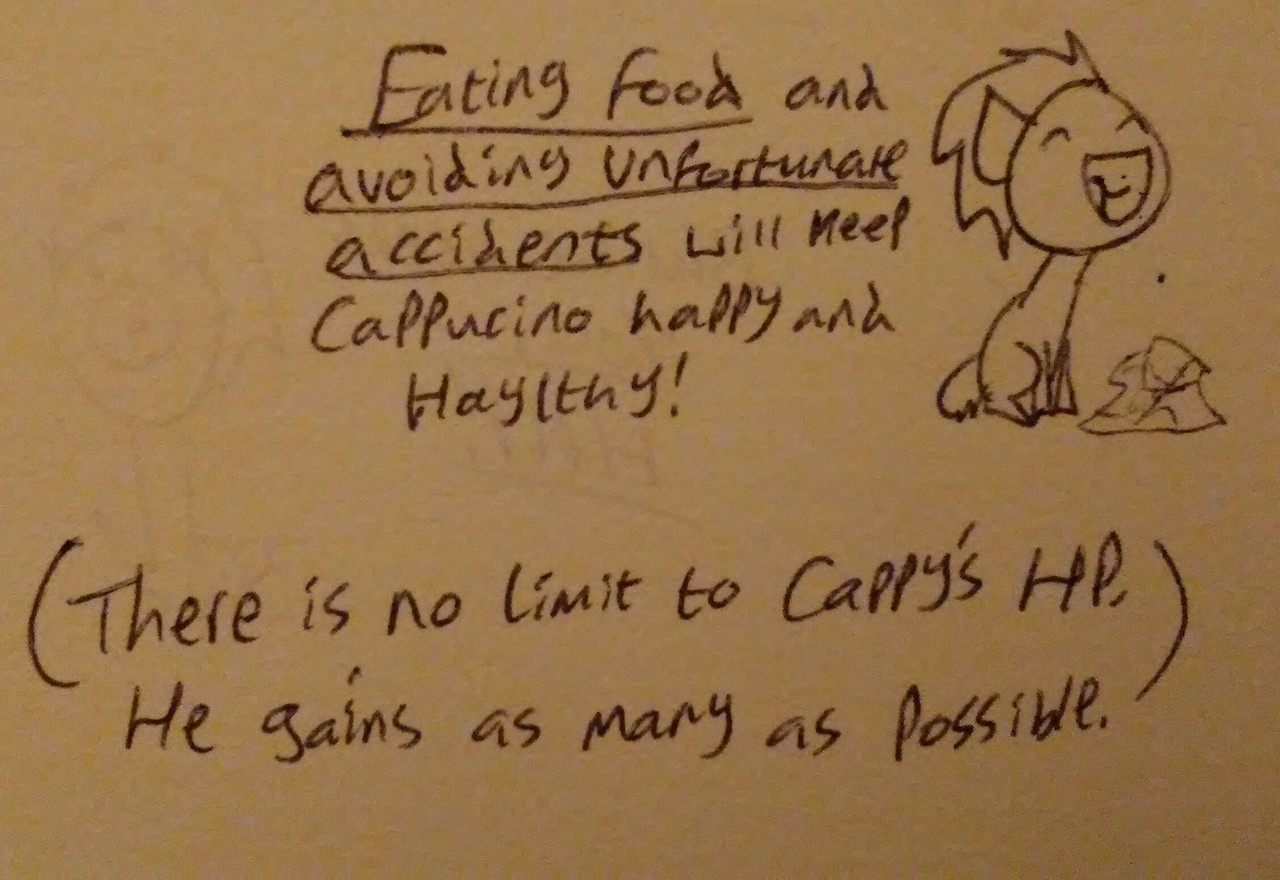 Eating food and
avoiding unfortunate
accidents will keep
Cappucino happy and
Haylthy!
(There is no limit to Cappy's HP.
He gains as many as possible.)